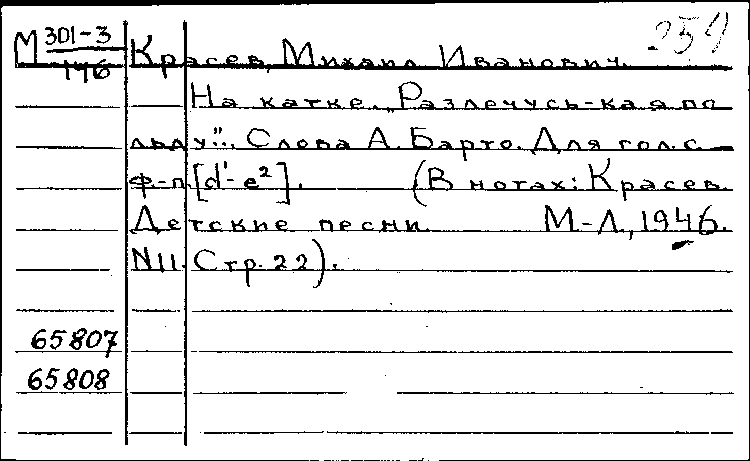 М 301-3 Красев, Михаил Иванович. 254
146
На катке. „Разлечусь-ка я по
льду". Слова А. Барто. Для гол. с
ф-п. [d'-e²]. (В нотах: Красев.
Детские песни. М-Л., 1946.
N11. Стр. 22).
65807
65808